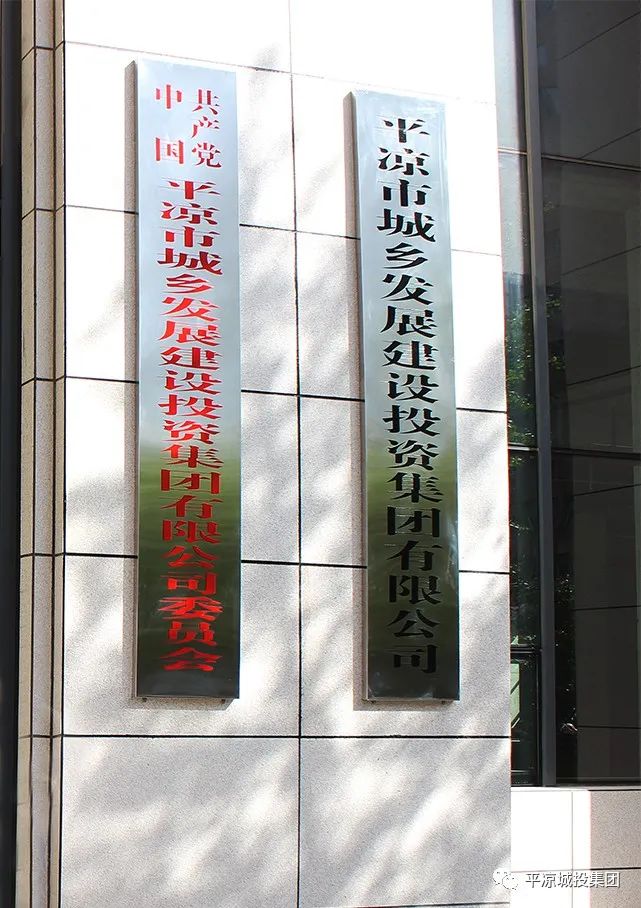 中国共产党平凉市城乡发展建设投资集团有限公司委员会
平凉市城乡发展建设投资集团有限公司
平凉城投集团